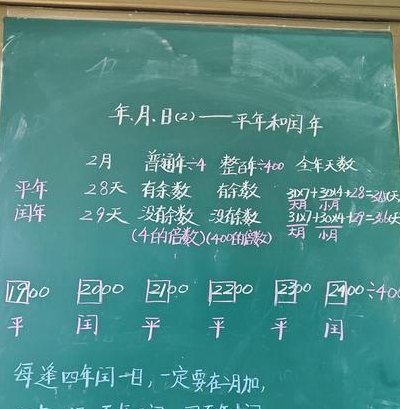 年、月、日(2)——平年和闰年
2月 普通年÷4 整百年÷400 全年天数
平年 28天 有余数 有余数 31×7+30×4+28=365天
大月 小月
闰年 29天 没有余数 没有余数 31×7+30×4+29=366天
大月 小月
(4的倍数)(400的倍数)
1900 2000 2100 2200 2300 2400÷400
平 闰 平 平 平 闰
每逢四年闰一日,一定要在二月加,